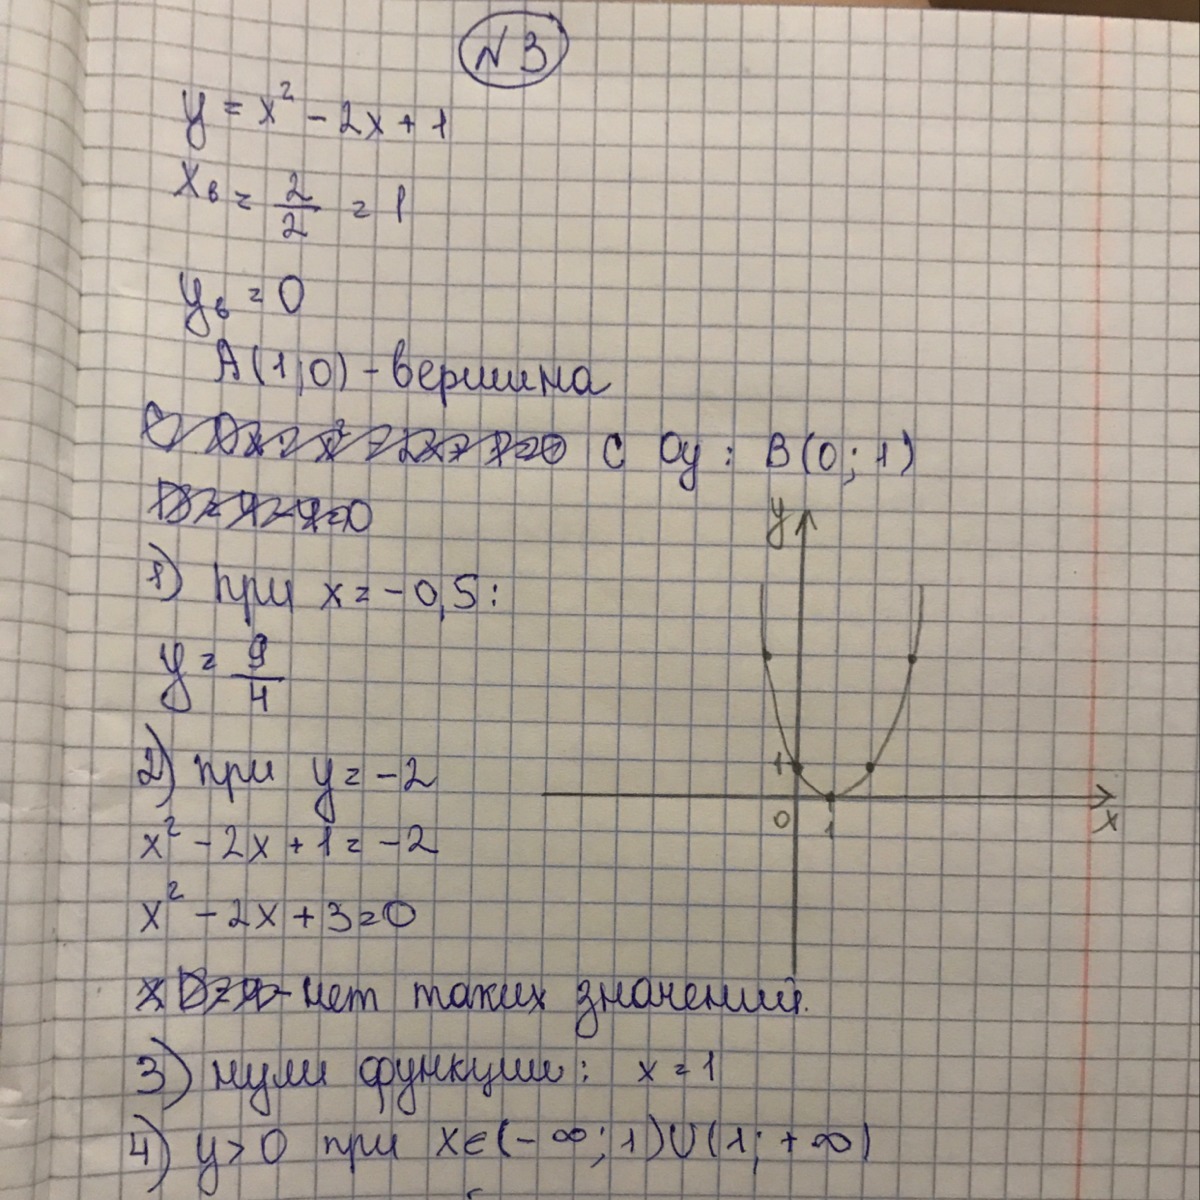 N 3
y = x² - 2x + 1
xв = 2/2 = 1
yв = 0
A(1;0) - вершина
С Oy: B(0;1)
y
1) при x = -0,5:
y = 9/4
2) при y = -2
1
0 1 x
x² - 2x + 1 = -2
x² - 2x + 3 = 0
- нет таких значений.
3) нули функции: x = 1
4) y > 0 при x∈(-∞;1)∪(1;+∞)